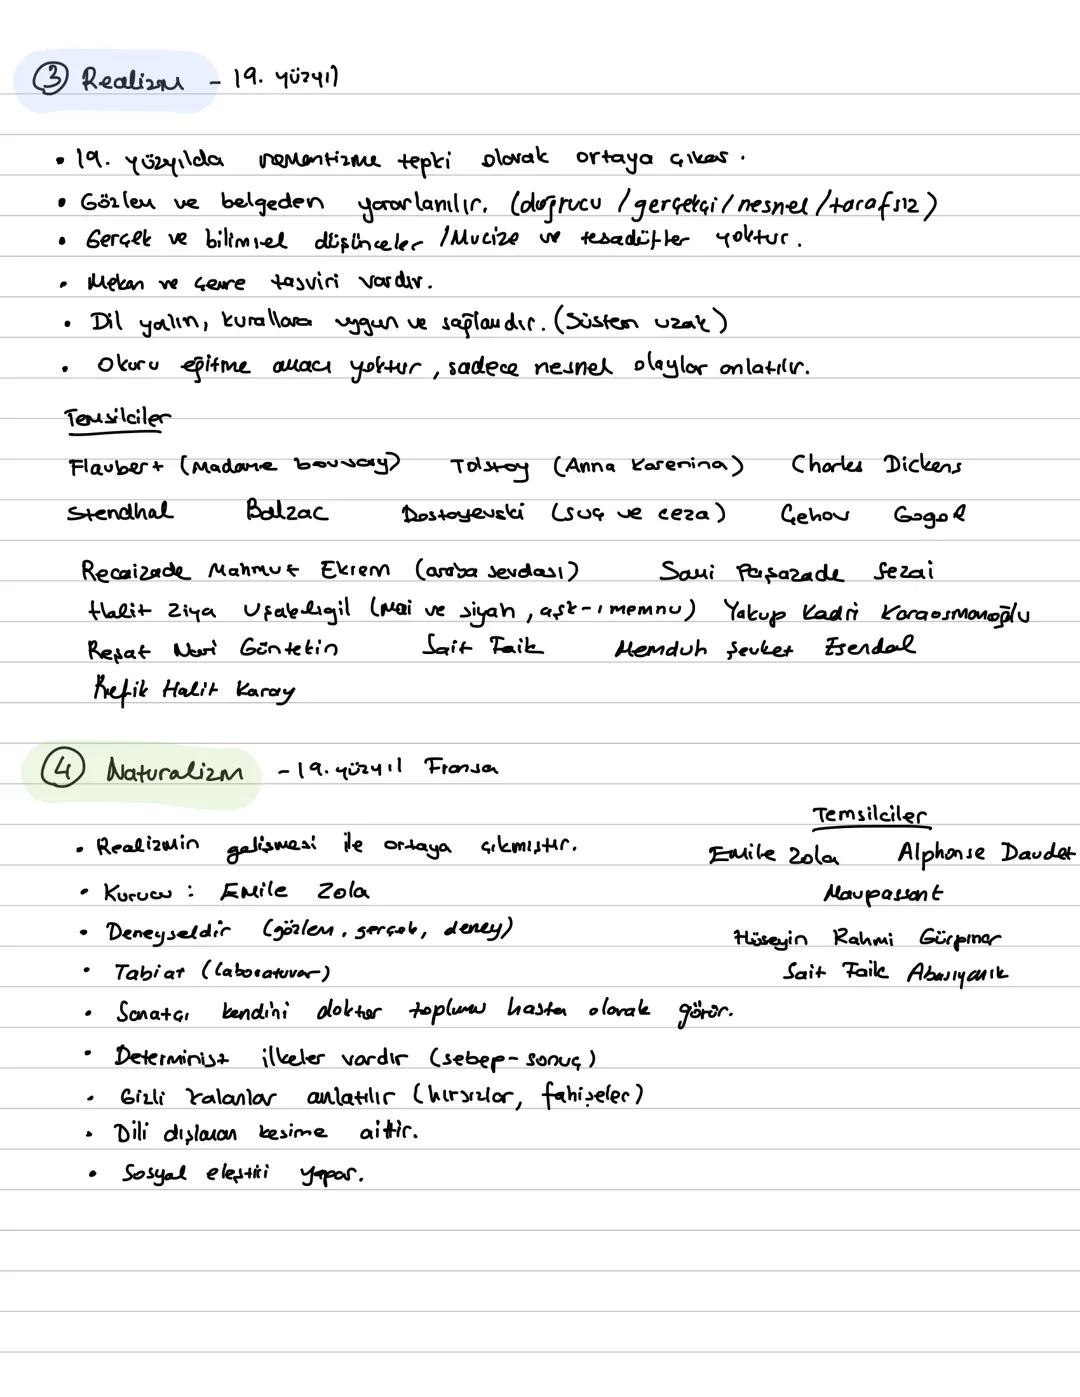 ③ Realizm - 19. yüzyıl
• 19. yüzyılda romantizme tepki olarak ortaya çıkar.
• Gözlem ve belgeden yararlanılır. (doğrucu / gerçekçi / nesnel / tarafsız)
• Gerçek ve bilimsel düşünceler / Mucize ve tesadüfler yoktur.
• Mekan ve çevre tasviri vardır.
• Dil yalın, kurallara uygun ve sağlamdır. (Süsten uzak)
• Okuru eğitme amacı yoktur, sadece nesnel olaylar anlatılır.
Temsilciler
Flaubert (Madame bovary) Tolstoy (Anna Karenina) Charles Dickens
Stendhal Balzac Dostoyevski (suç ve ceza) Çehov Gogol
Recaizade Mahmut Ekrem (araba sevdası) Sami Paşazade Sezai
Halit Ziya Uşaklıgil (Mai ve siyah, aşk-ı memnu) Yakup Kadri Karaosmanoğlu
Reşat Nuri Güntekin Sait Faik Memduh Şevket Esendal
Refik Halit Karay
④ Naturalizm - 19. yüzyıl Fransa
Temsilciler
• Realizmin gelişmesi ile ortaya çıkmıştır. Emile Zola Alphonse Daudet
• Kurucu : Emile Zola Maupassant
• Deneyseldir (gözlem, gerçek, deney) Hüseyin Rahmi Gürpınar
• Tabiat (laboratuvar) Sait Faik Abasıyanık
• Sanatçı kendini doktor toplumu hasta olarak görür.
• Determinist ilkeler vardır (sebep-sonuç)
• Gizli kalanlar anlatılır (hırsızlar, fahişeler)
• Dili dışlanan kesime aittir.
• Sosyal eleştiri yapar.